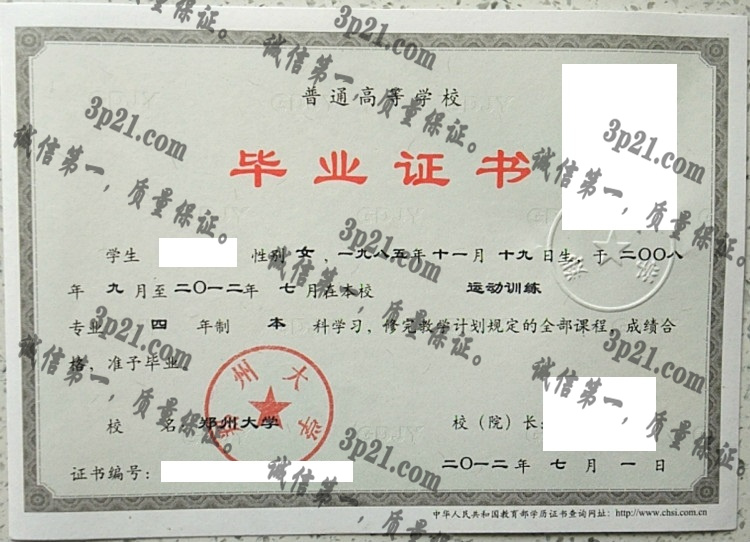 普通高等学校
毕业证书
学生 性别 女，一九八五年 十一月 十九 日生，于 二〇〇八
年 九 月至 二〇一二年 七 月在本校 运动训练
专业 四 年制 本 科学习，修完教学计划规定的全部课程，成绩合
格，准予毕业。
郑州大学
校 名：郑州大学 校（院）长：
证书编号： 二〇一二年 七 月 一 日
中华人民共和国教育部学历证书查询网址：http://www.chsi.com.cn
3p21.com
诚信第一，质量保证。
3p21.com
诚信第一，质量保证。
3p21.com
诚信第一，质量保证。
3p21.com
诚信第一，质量保证。
3p21.com
诚信第一，质量保证。
3p21.com
诚信第一，质量保证。
3p21.com
诚信第一，质量保证。
3p21.com
诚信第一，质量保证。